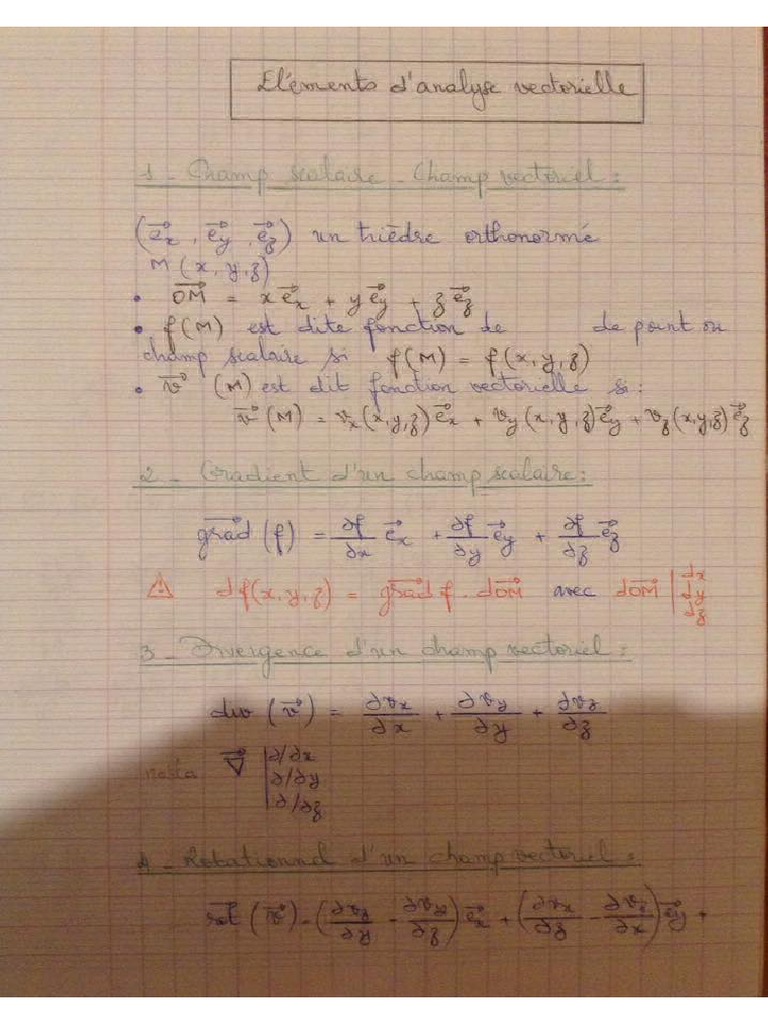 Eléments d'analyse vectorielle
1 - Champ scalaire - Champ vectoriel :
(e⃗x , e⃗y , e⃗z) un trièdre orthonormé
M(x, y, z)
• OM⃗ = x e⃗x + y e⃗y + z e⃗z
• f(M) est dite fonction de de point ou
champ scalaire si f(M) = f(x, y, z)
• v⃗ (M) est dit fonction vectorielle si :
v⃗(M) = vx(x, y, z) e⃗x + vy(x, y, z) e⃗y + vz(x, y, z) e⃗z
2 - Gradient d'un champ scalaire :
grad⃗ (f) = ∂f/∂x e⃗x + ∂f/∂y e⃗y + ∂f/∂z e⃗z
⚠ df(x, y, z) = grad⃗ f . dOM⃗ avec dOM⃗ | dx dy dz
3 - Divergence d'un champ vectoriel :
div (v⃗) = ∂vx/∂x + ∂vy/∂y + ∂vz/∂z
∇⃗ | ∂/∂x
∂/∂y
∂/∂z
4 - Rotationnel d'un champ vectoriel :
rot⃗ (v⃗) = (∂vz/∂y - ∂vy/∂z) e⃗x + (∂vx/∂z - ∂vz/∂x) e⃗y +